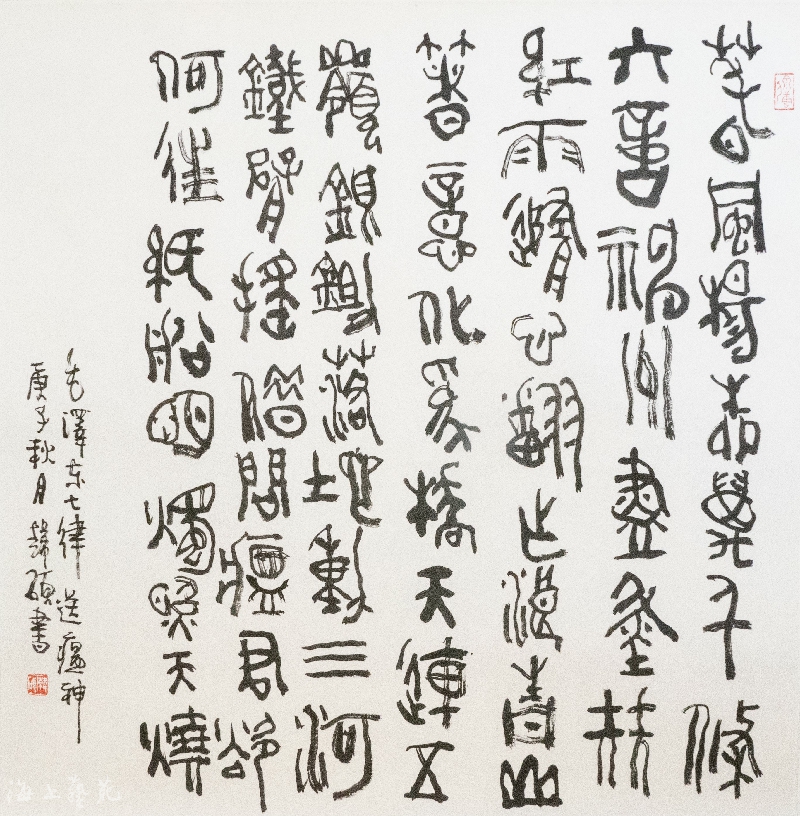 春風楊柳萬千條
六億神州盡舜堯
紅雨隨心翻作浪青山
著意化為橋天連五
嶺銀鋤落地動三河
鐵臂搖借問瘟君欲
何往紙船明燭照天燒
毛澤東七律 送瘟神
庚子秋月 韓碩書
海上藝苑